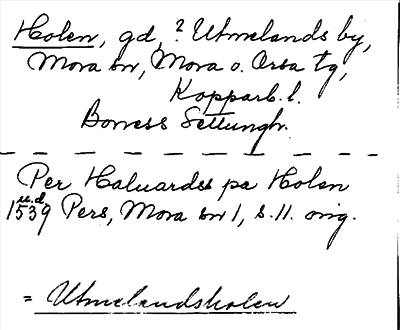 Holen, gd, ? Utmelands by,
Mora sn, Mora o. Orsa tg,
Kopparb. l.
Per Haluardss pa Holen
u.d.
1539 Pers, Mora sn 1, s. 11. orig.
= Utmelandsholen